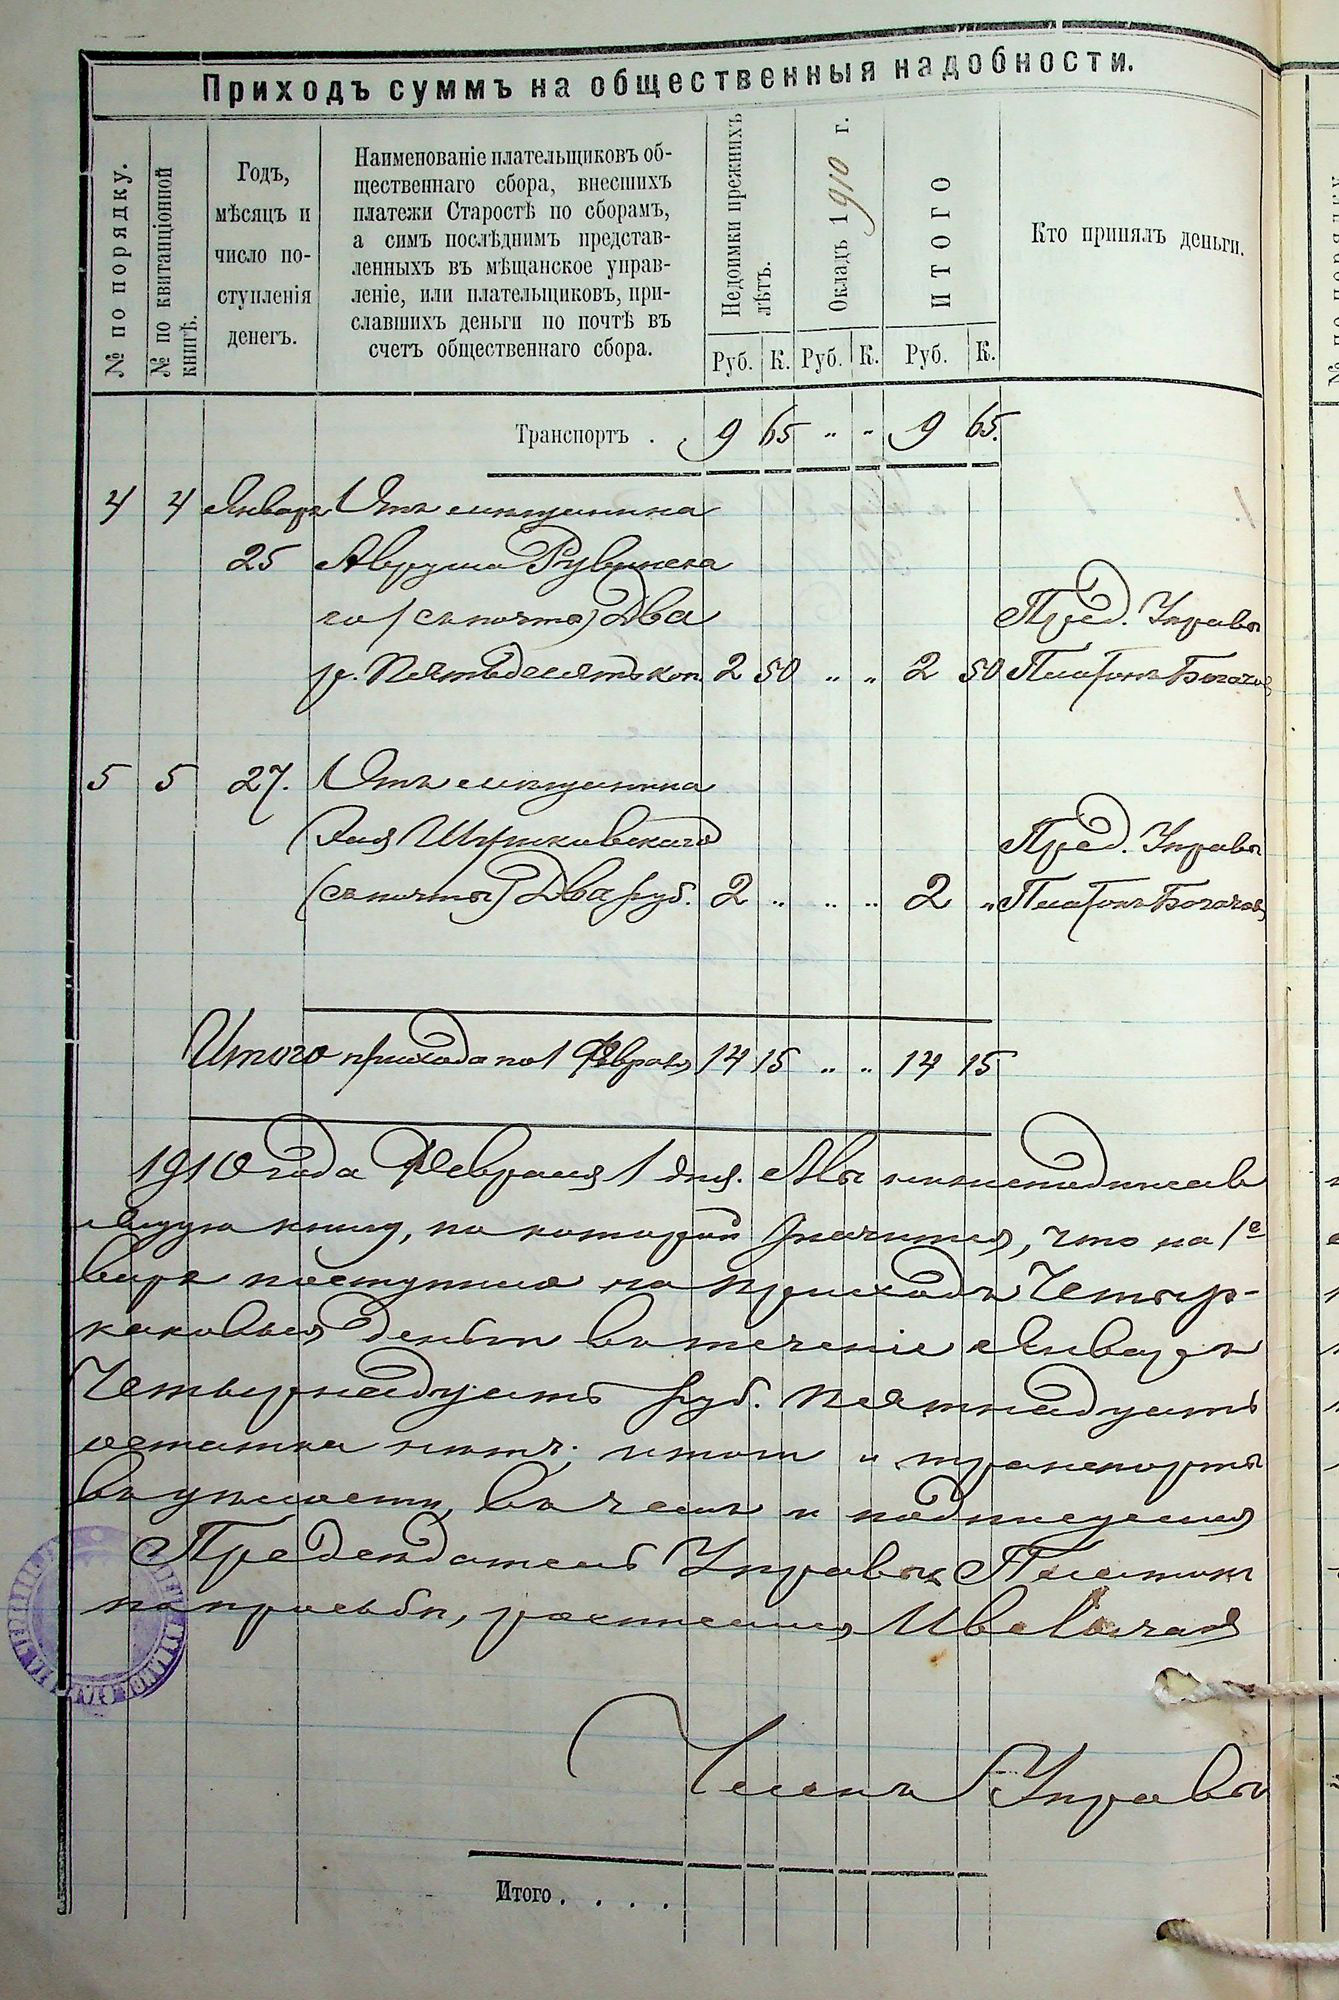 Приходъ суммъ на общественныя надобности.
№ по порядку.
№ по квитанціонной книгѣ.
Годъ,
мѣсяцъ и
число по-
ступленія
денегъ.
Наименованіе плательщиковъ об-
щественнаго сбора, внесшихъ
платежи Старостѣ по сборамъ,
а симъ послѣднимъ представ-
ленныхъ въ мѣщанское управ-
леніе, или плательщиковъ, при-
славшихъ деньги по почтѣ въ
счетъ общественнаго сбора.
Недоимки прежнихъ
лѣтъ.
Окладъ 1910 г.
ИТОГО
Кто принялъ деньги.
Руб. К. Руб. К. Руб. К.
Транспортъ . . 9 65 " " 9 65.
4 4 Январь Отъ мѣщанина
25 Аврума Рувинска
го (съ почты) Два
р. Пятьдесятъ коп. 2 50 " " 2 50
Пред. Управы
Платонъ Богачов
5 5 27. Отъ мѣщанина
Эля
(съ почты) Два руб. 2 " " " 2 "
Пред. Управы
Платонъ Богачов
Итого прихода по 1 Февраля 14 15 " " 14 15
1910 года Февраля 1 дня. Мы нижеподписав
книгу, по которой значится, что на 1е
поступило на приходъ Четыр-
каковыя деньги въ теченіе Января
Четырнадцать руб. Пятнадцать
остатка нѣтъ; итоги и транспорты
въ чемъ и подписуемся
Предсѣдатель Управы Платонъ
Членъ Управы
Итого . . . .